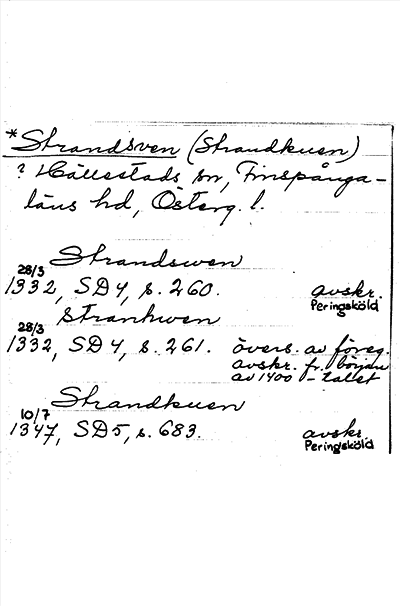 *Strandsven (Strandkuen)
? Hällestads sn, Finspånga-
läns hd, Österg. l.
Strandswen
28/3
1332, SD4, s. 260. avskr.
Peringsköld
Strankwen
28/3
1332, SD4, s. 261. övers. av föreg.
avskr. fr. början
av 1400-talet
Strandkuen
10/7
1347, SD5, s. 683. avskr.
Peringsköld